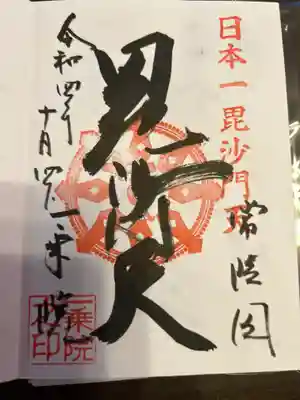 日本一毘沙門
常陸国
毘沙門天
令和四年
十月四日
一乗院
一乗院
印